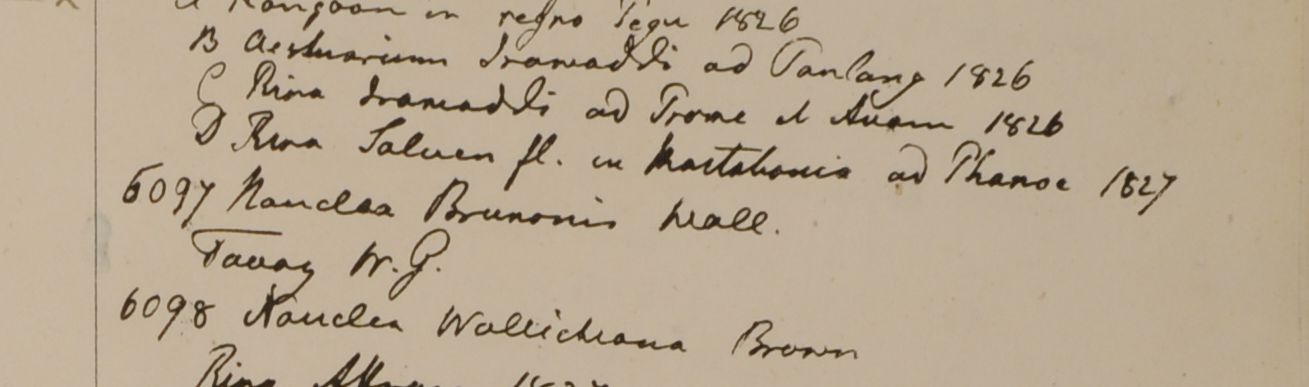 A Rangoon in regno Pegu 1826
B Aestuarium Irawaddi ad Panlang 1826
C Ripa Irawaddi ad Prome et Avam 1826
D Ripa Saluen fl. in Martabania ad Phanoe 1827
6097 Nauclea Brunonis Wall.
Tavoy W.G.
6098 Nauclea Wallichiana Brown
Ripa